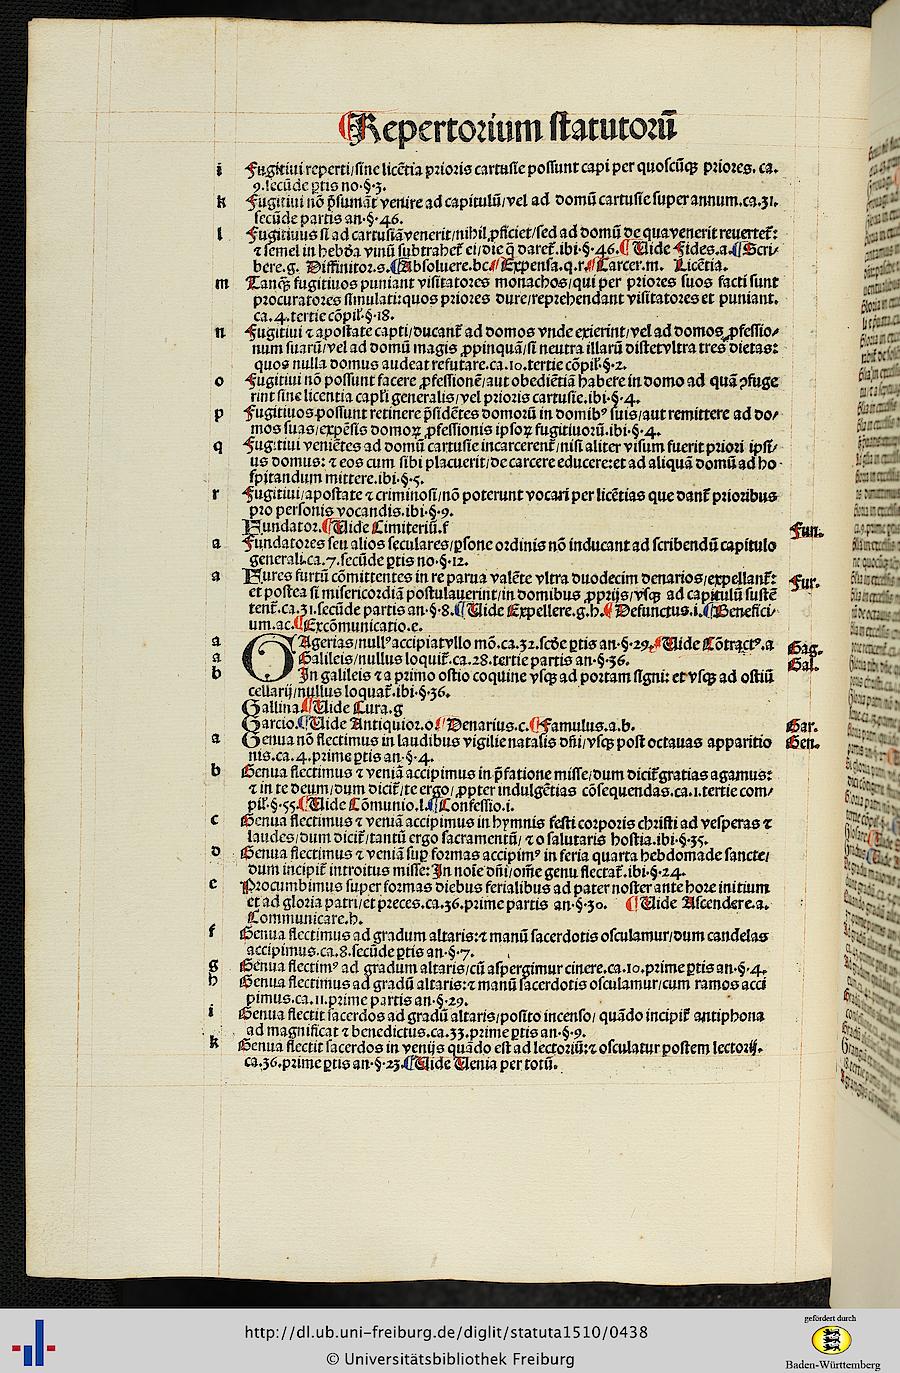 Repertorium statutorū
i Fugitiui reperti/sine licētia prioris cartusie possunt capi per quoscūqꝫ priores. ca.
9.secūde ꝑtis no·§·3.
k Fugitiui nō p̄sumāt venire ad capitulū/vel ad domū cartusie super annum.ca.31.
secūde partis an·§·46.
l Fugitiuus si ad cartusiā venerit/nihil ꝓficiet/sed ad domū de qua venerit reuertet᷑:
⁊ semel in hebda vinū subtrahet᷑ ei/die q̄ daret᷑.ibi·§·46.¶ Uide Fides.a.¶Scri-
bere.g. Diffinitor.s.¶Absoluere.bc¶Expensa.q.r¶Carcer.m. Licētia.
m Tanqꝫ fugitiuos puniant visitatores monachos/qui per priores suos facti sunt
procuratores simulati:quos priores dure/reprehendant visitatores et puniant.
ca.4.tertie cōpil·§·18.
n Fugitiui ⁊ apostate capti/ducant᷑ ad domos vnde exierint/vel ad domos ꝓfessio/
num suarū/vel ad domū magis ꝓpinquā/si neutra illarū distet vltra tres dietas:
quos nulla domus audeat refutare.ca.10.tertie cōpil·§·2.
o Fugitiui nō possunt facere ꝓfessionē/aut obediētiā habere in domo ad quā ꝯfuge
rint sine licentia capl̄i generalis/vel prioris cartusie.ibi·§·4.
p Fugitiuos possunt retinere p̄sidētes domorū in domibꝰ suis/aut remittere ad do/
mos suas/expēsis domoꝝ ꝓfessionis ipsoꝝ fugitiuorū.ibi·§·4.
q Fugitiui veniētes ad domū cartusie incarcerent᷑/nisi aliter visum fuerit priori ipsi/
us domus: ⁊ eos cum sibi placuerit/de carcere educere:et ad aliquā domū ad ho-
spitandum mittere.ibi·§·5.
r Fugitiui/apostate ⁊ criminosi/nō poterunt vocari per licētias que dant᷑ prioribus
pro personis vocandis.ibi·§·9.
Fundator.¶Uide Cimiteriū.f Fun.
a Fundatores seu alios seculares/ꝑsone ordinis nō inducant ad scribendū capitulo
generali.ca.7.secūde ꝑtis no·§·12.
a Fures furtū cōmittentes in re parua valēte vltra duodecim denarios/expellant᷑: Fur.
et postea si misericordiā postulauerint/in domibus ꝓprijs/vsqꝫ ad capitulū sustē
tent᷑.ca.31.secūde partis an·§·8.¶Uide Expellere.g.h.¶Defunctus.i.¶Benefici-
um.ac.¶Excōmunicatio.e.
a GAgerias/nullꝰ accipiat vllo mō.ca.32.scd̄e ꝑtis an·§·29.¶Uide Cōtractꝰ.a Gag.
a Galileis/nullus loquit᷑.ca.28.tertie partis an·§·36. Gal.
b In galileis ⁊ a primo ostio coquine vsqꝫ ad portam signi: et vsqꝫ ad ostiū
cellarij/nullus loquat᷑.ibi·§·36.
Gallina.¶Uide Cura.g
Garcio.¶Uide Antiquior.o¶Denarius.c.¶Famulus.a.b. Gar.
a Genua nō flectimus in laudibus vigilie natalis dn̄i/vsqꝫ post octauas apparitio Gen.
nis.ca.4.prime ꝑtis an·§·4.
b Genua flectimus ⁊ veniā accipimus in p̄fatione misse/dum dicit᷑ gratias agamus:
⁊ in te deum/dum dicit᷑/te ergo/ꝓpter indulgētias cōsequendas.ca.1.tertie com/
pil·§·55.¶Uide Cōmunio.l.¶Confessio.i.
c Genua flectimus ⁊ veniā accipimus in hymnis festi corporis christi ad vesperas ⁊
laudes/dum dicit᷑/tantū ergo sacramentū/⁊ o salutaris hostia.ibi·§·35.
d Genua flectimus ⁊ veniā sup̲ formas accipimꝰ in feria quarta hebdomade sancte/
dum incipit᷑ introitus misse: In noīe dn̄i/om̄e genu flectat᷑.ibi·§·24.
e Procumbimus super formas diebus ferialibus ad pater noster ante hore initium
et ad gloria patri/et preces.ca.36.prime partis an·§·30. ¶Uide Ascendere.a.
Communicare.h.
f Genua flectimus ad gradum altaris:⁊ manū sacerdotis osculamur/dum candelas
accipimus.ca.8.secūde ꝑtis an·§·7.
g Genua flectimꝰ ad gradum altaris/cū aspergimur cinere.ca.10.prime ꝑtis an·§·4.
h Genua flectimus ad gradū altaris:⁊ manū sacerdotis osculamur/cum ramos acci
pimus.ca.11.prime partis an·§·29.
i Genua flectit sacerdos ad gradū altaris/posito incenso/ quādo incipit᷑ antiphona
ad magnificat ⁊ benedictus.ca.33.prime ꝑtis an·§·9.
k Genua flectit sacerdos in venijs quādo est ad lectoriū:⁊ osculatur postem lectorij.
ca.36.prime ꝑtis an·§·23.¶Uide Uenia per totū.
http://dl.ub.uni-freiburg.de/diglit/statuta1510/0438
© Universitätsbibliothek Freiburg
gefördert durch
Baden-Württemberg